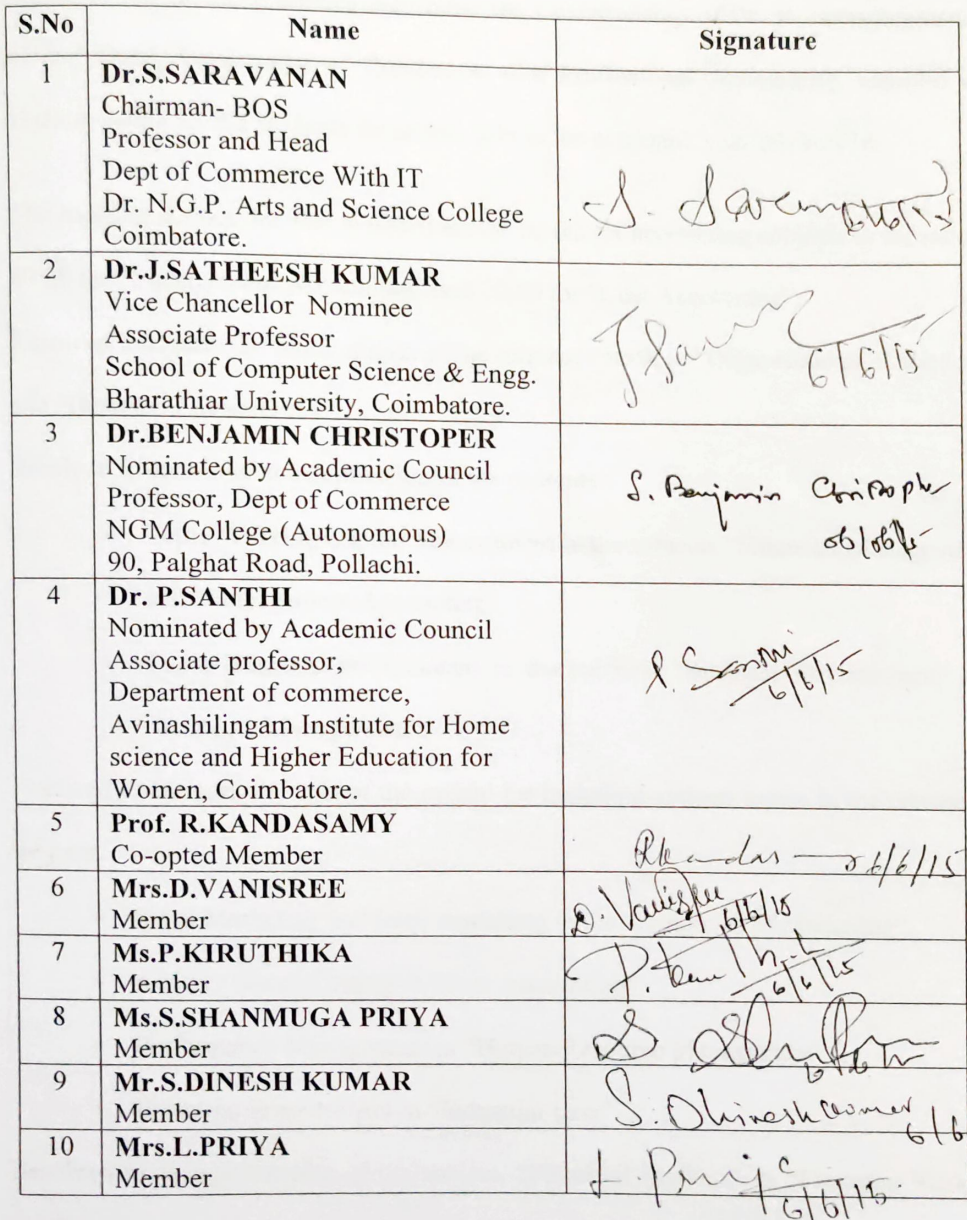 S.No Name Signature
1 Dr.S.SARAVANAN
Chairman- BOS
Professor and Head
Dept of Commerce With IT
Dr. N.G.P. Arts and Science College
Coimbatore.
S. 6/6/15
2 Dr.J.SATHEESH KUMAR
Vice Chancellor Nominee
Associate Professor
School of Computer Science & Engg.
Bharathiar University, Coimbatore.
6/6/15
3 Dr.BENJAMIN CHRISTOPER
Nominated by Academic Council
Professor, Dept of Commerce
NGM College (Autonomous)
90, Palghat Road, Pollachi.
S. Benjamin Christopher
06/06/15
4 Dr. P.SANTHI
Nominated by Academic Council
Associate professor,
Department of commerce,
Avinashilingam Institute for Home
science and Higher Education for
Women, Coimbatore.
P. Santhi
6/6/15
5 Prof. R.KANDASAMY
Co-opted Member
6/6/15
6 Mrs.D.VANISREE
Member
D. Vanisree
6/6/15
7 Ms.P.KIRUTHIKA
Member
P.
6/6/15
8 Ms.S.SHANMUGA PRIYA
Member
S
9 Mr.S.DINESH KUMAR
Member
S. Dhinesh Kumar
6/6
10 Mrs.L.PRIYA
Member
L. Priya
6/6/15